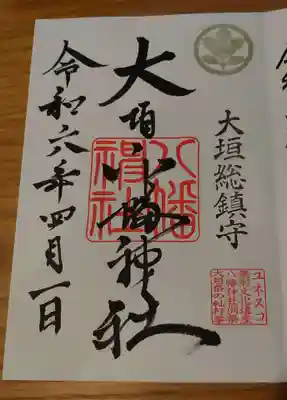 大垣総鎮守
大垣八幡神社
八幡神社
令和六年四月一日
ユネスコ
無形文化遺産
八幡神社例祭
大垣祭の軕行事